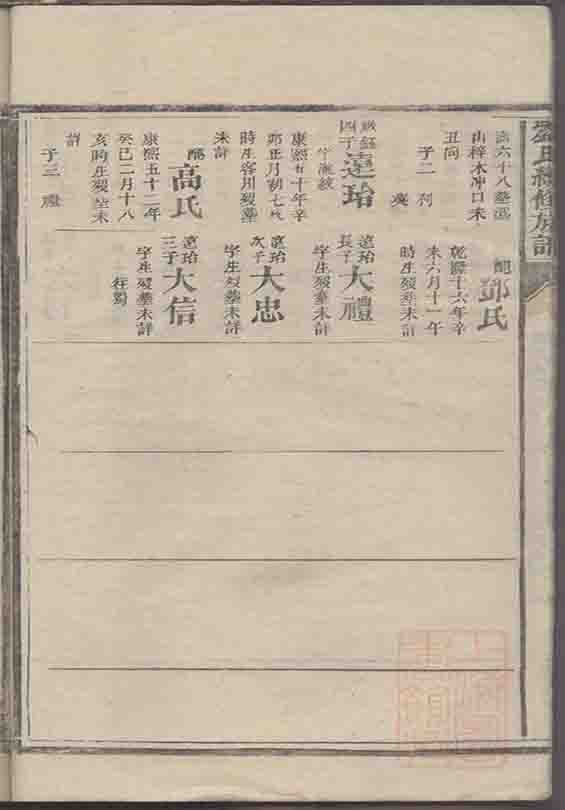 劉氏續修族譜
六十八葬
山梓木冲口未
丑向
子二
四子遠珆
康熙五十年辛
卯正月初七戌
時生客川歿葬
未詳
配高氏
康熙五十二年
癸巳二月十八
亥時生歿葬未
詳
子三 禮
配鄧氏
乾隆十六年辛
未六月十一午
時生歿葬未詳
遠珆長子大禮
字生歿葬未詳
遠珆次子大忠
字生歿葬未詳
遠珆三子大信
字生歿葬未詳
往蜀